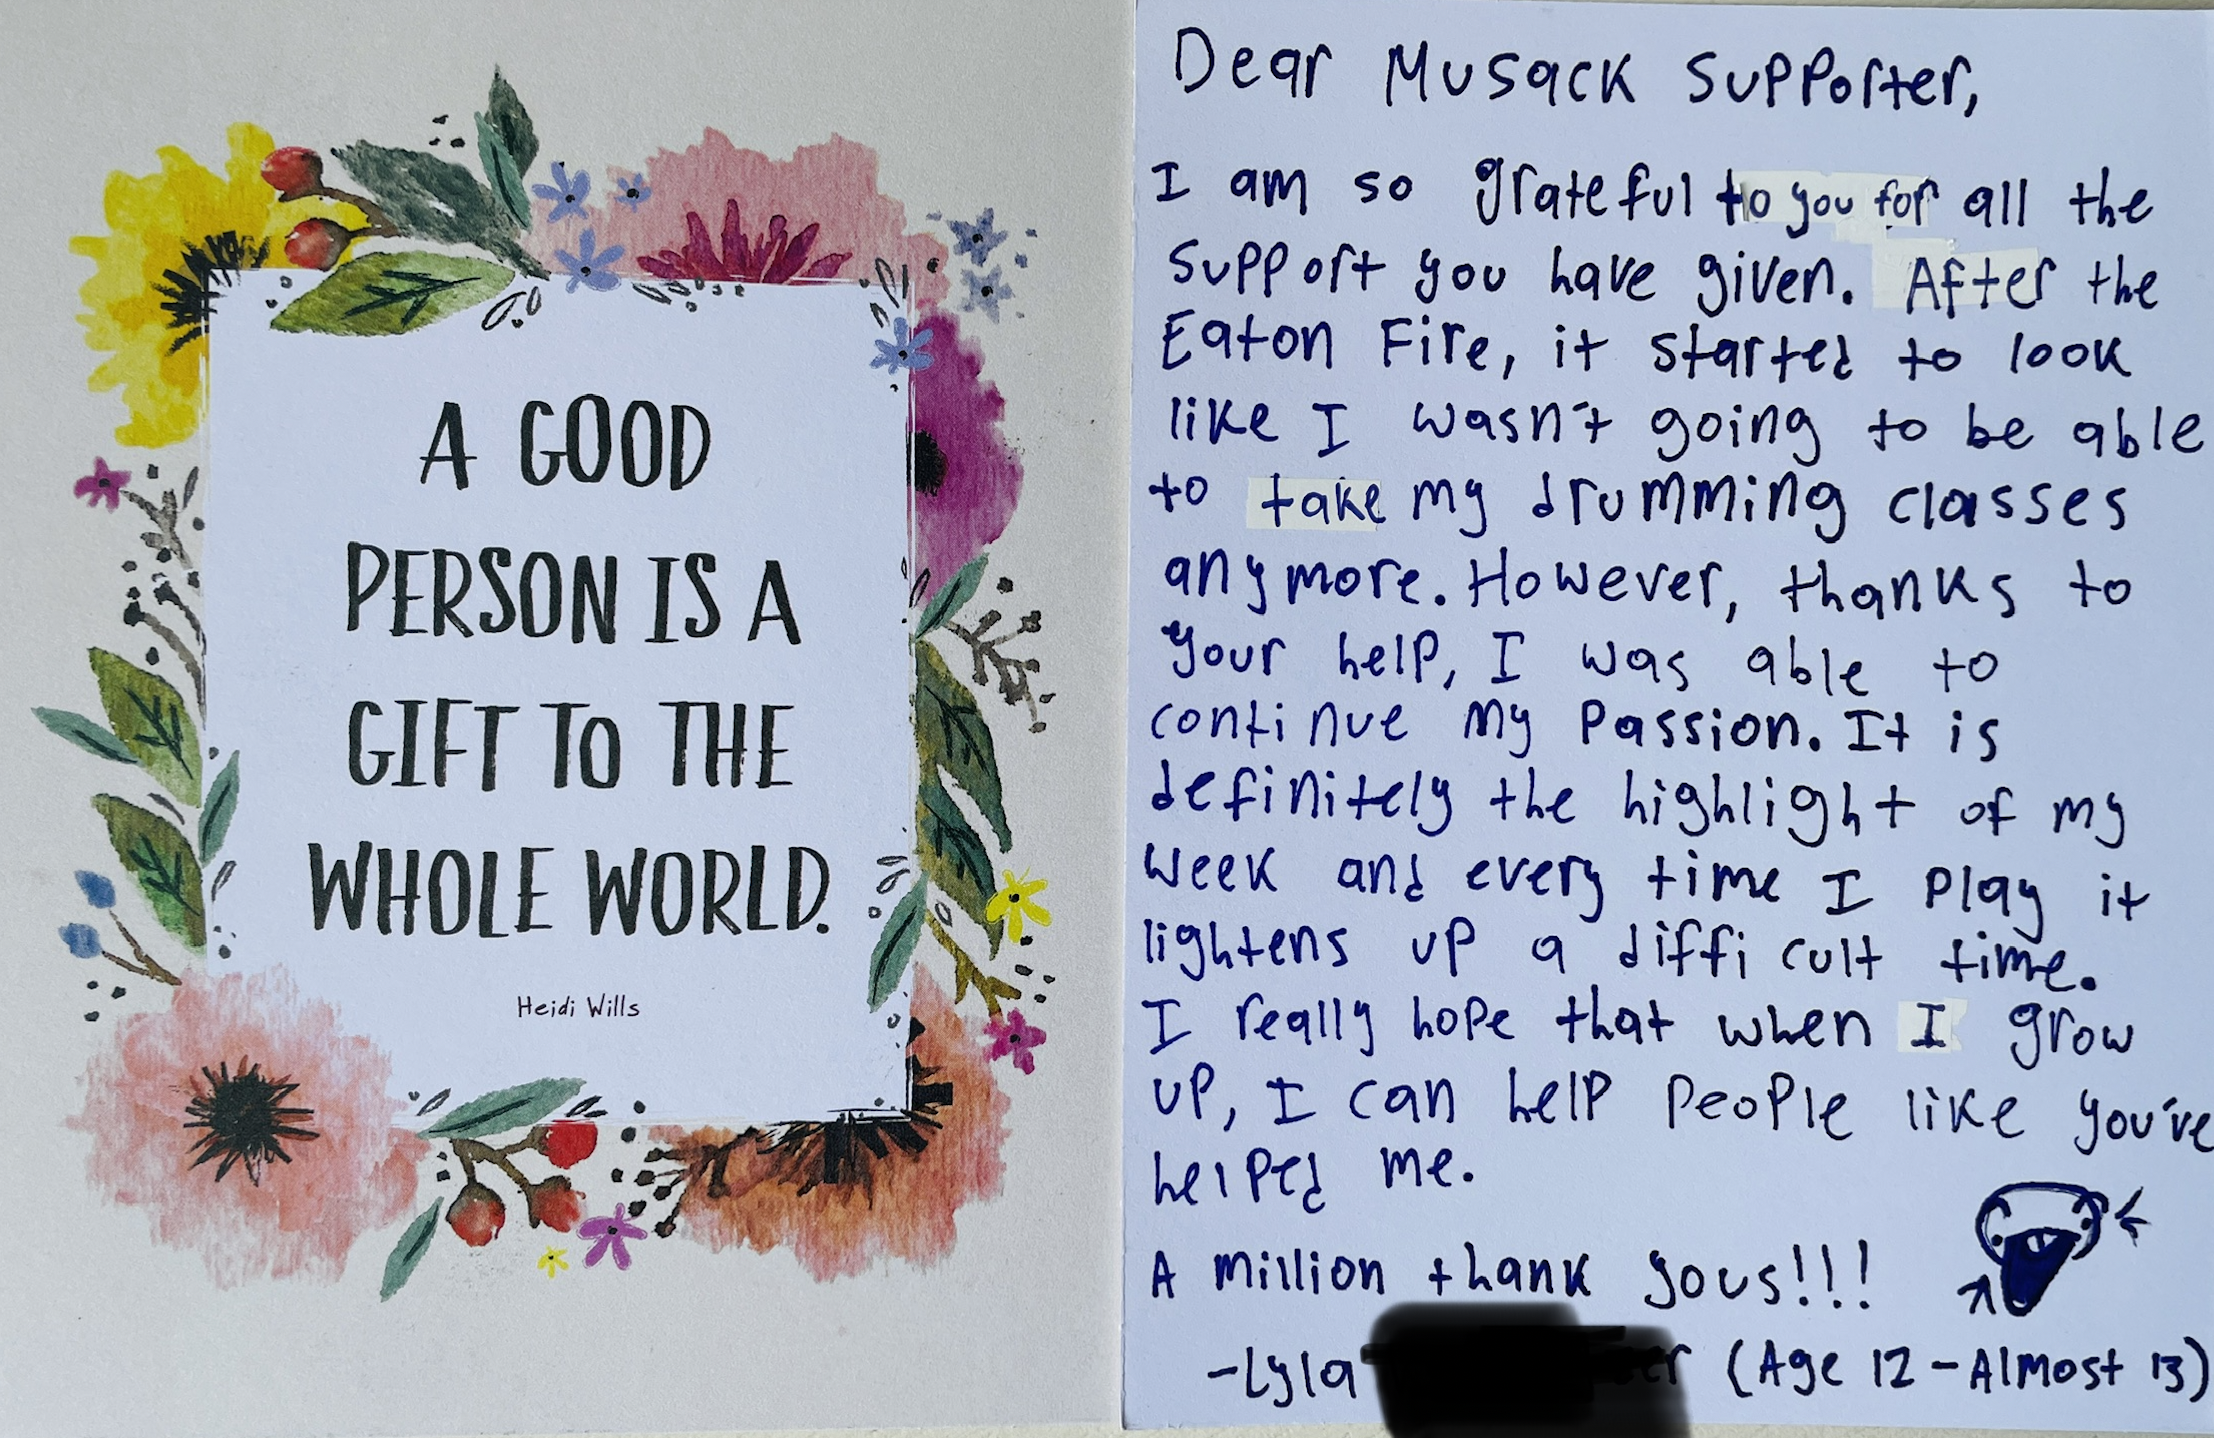 A GOOD
PERSON IS A
GIFT TO THE
WHOLE WORLD.
Heidi Wills
Dear Musack Supporter,
I am so grateful to you for all the
support you have given. After the
Eaton Fire, it started to look
like I wasn't going to be able
to take my drumming classes
anymore. However, thanks to
your help, I was able to
continue my passion. It is
definitely the highlight of my
week and every time I play it
lightens up a difficult time.
I really hope that when I grow
up, I can help people like you've
helped me.
A million thank yous!!!
-Lyla (Age 12 - Almost 13)